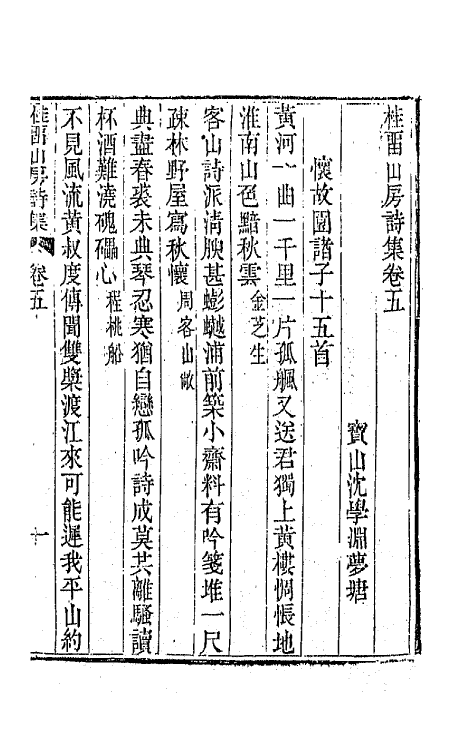 桂畱山房詩集卷五
寶山沈學淵夢塘
懷故園諸子十五首
黃河一曲一千里一片孤帆又送君獨上黃樓惆悵地
淮南山色黯秋雲金芝生
客山詩派淸腴甚蟛蠘浦前築小齋料有吟箋堆一尺
疎林野屋寫秋懷周客山𢾭
典盡春裘未典琴忍寒猶自戀孤吟詩成莫共離騷讀
杯酒難澆磈礧心程桃船
不見風流黃叔度傳聞雙槳渡江來可能遲我平山約
桂畱山房詩集 卷五 一